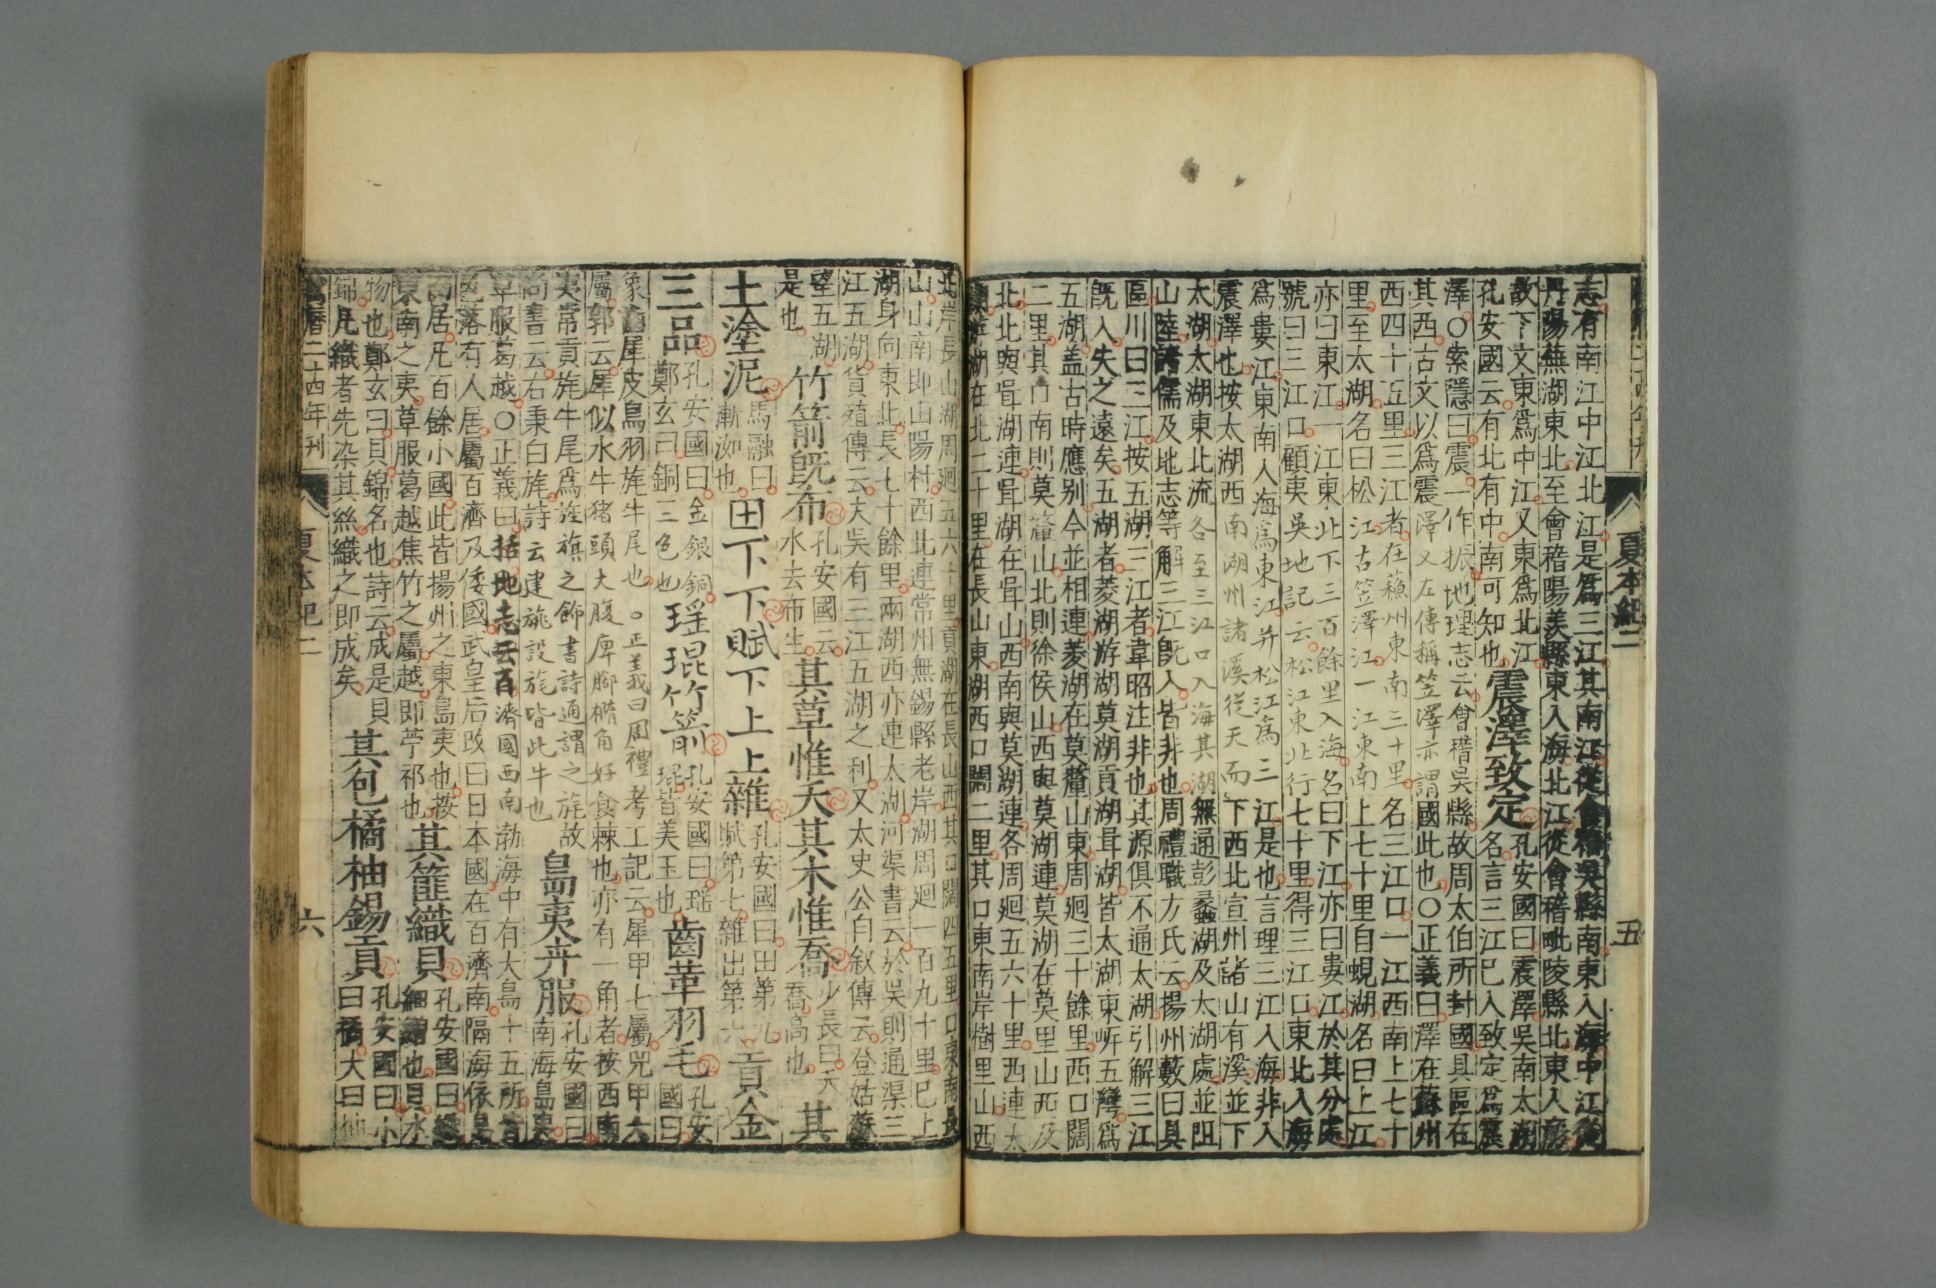 夏本紀二
五
志有南江中江北江是爲三江其南江從會稽吳縣南東入海中江從
丹陽蕪湖東北至會稽陽羨縣東入海北江從會稽毗陵縣北東入海
故下文東爲中江又東爲北江
孔安國云有北有中南可知也
震澤致定
孔安國曰震澤吳南太湖
名言三江已入致定爲震
澤○索隱曰震一作振地理志云會稽吳縣故周太伯所封國具區在
其西古文以爲震澤又左傳稱笠澤亦謂國此也○正義曰澤在蘇州
西四十五里三江者在蘇州東南三十里名三江口一江西南上七十
里至太湖名曰松江古笠澤江一江東南上七十里自蜆湖名曰上江
亦曰東江一江東北下三百餘里入海名曰下江亦曰婁江於其分處
號曰三江口顧夷吳地記云松江東北行七十里得三江口東北入海
爲婁江東南入海爲東江并松江爲三江是也言理三江入海非入
震澤也按太湖西南湖州諸溪從天而下西北宣州諸山有溪並下
太湖太湖東北流各至三江口入海其湖無通彭蠡湖及太湖處並阻
山陸諸儒及地志等解三江旣入皆非也周禮職方氏云揚州藪曰具
區川曰三江按五湖三江者韋昭注非也其源俱不通太湖引解三江
旣入失之遠矣五湖者菱湖游湖莫湖貢湖胥湖皆太湖東岍五灣爲
五湖盖古時應別今並相連菱湖在莫釐山東周廻三十餘里西口闊
二里其口南則莫釐山北則徐侯山西與莫湖連莫湖在莫里山西及
北北與胥湖連胥湖在胥山西南與莫湖連各周廻五六十里西連太
湖游湖在北二十里在長山東湖西口闊二里其口東南岸樹里山西
北岸長山湖周廻五六十里貢湖在長山西其口闊四五里口東南長
山山南即山陽村西北連常州無錫縣老岸湖周廻一百九十里已上
湖身向東北長七十餘里兩湖西亦連太湖河渠書云於吳則通渠三
江五湖貨殖傳云夫吳有三江五湖之利又太史公自叙傳云登姑蘇
望五湖
是也
竹箭旣布
孔安國云
水去布生
其草惟夭其木惟喬
少長曰夭
喬高也
其
土塗泥
馬融曰
漸洳也
田下下賦下上上雜
孔安國曰田第九
賦第七雜出第六
貢金
三品
孔安國曰金銀銅
鄭玄曰銅三色也
瑶琨竹箭
孔安國曰瑶
琨皆美玉也
齒革羽毛
孔安
國曰
象齒犀皮鳥羽旄牛尾也○正義曰周禮考工記云犀甲七屬兕甲六
屬郭云犀似水牛猪頭大腹庳脚橢角好食棘也亦有一角者按西南
夷常貢旄牛尾爲旌旗之飾書詩通謂之旄故
尚書云右秉白旄詩云建旐設旄皆此牛也
島夷卉服
孔安國曰
南海島夷
草服葛越○正義曰括地志云百濟國西南渤海中有大島十五所皆
邑落有人居屬百濟又倭國武皇后改曰日本國在百濟南隔海依島
而居凡百餘小國此皆揚州之東島夷也按
東南之夷草服葛越焦竹之屬越即苧祁也
其篚織貝
孔安國曰織
細繒也貝水
物也鄭玄曰貝錦名也詩云成是貝
錦凡織者先染其絲織之即成矣
其包橘柚錫貢
孔安國曰小
曰橘大曰柚
萬曆二十四年刊
夏本紀二
六